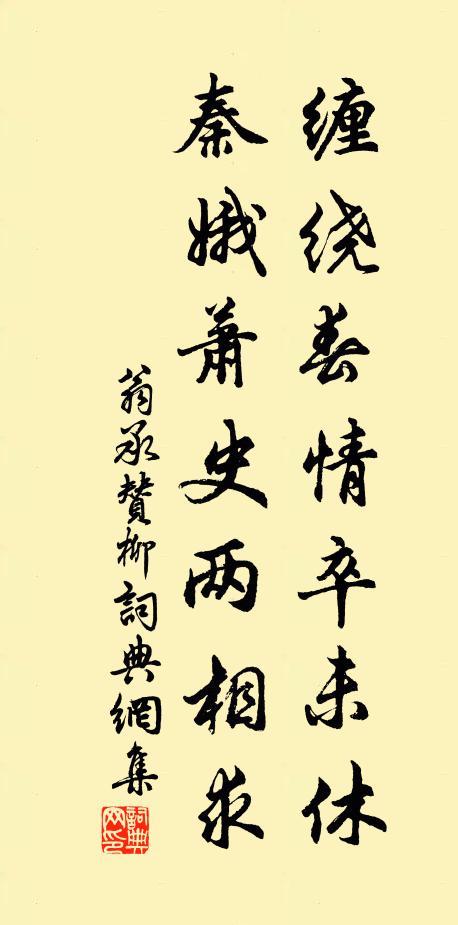 缠绕春情卒未休
秦娥萧史两相求
翁承赞柳詞典網集
詞典网印